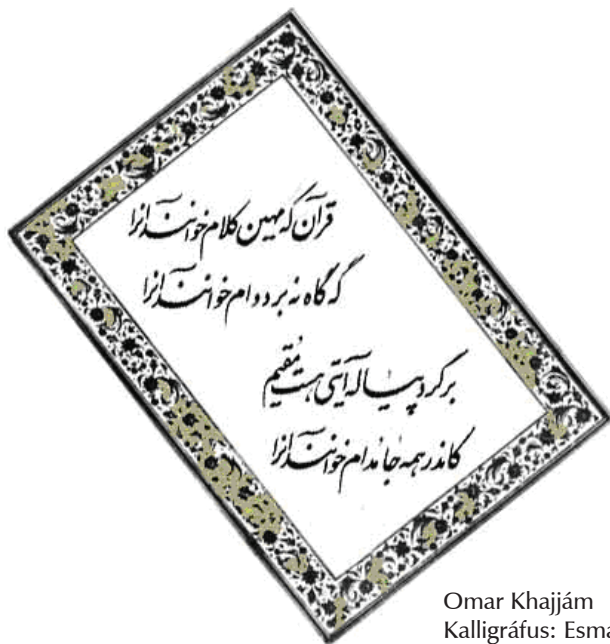 قرآن که مهین کلام خوانند آنرا
گه گاه نه بر دوام خوانند آنرا
بر گرد پیاله آیتی هست مقیم
کاندر همه جا مدام خوانند آنرا
Omar Khajjám
Kalligráfus: Esma